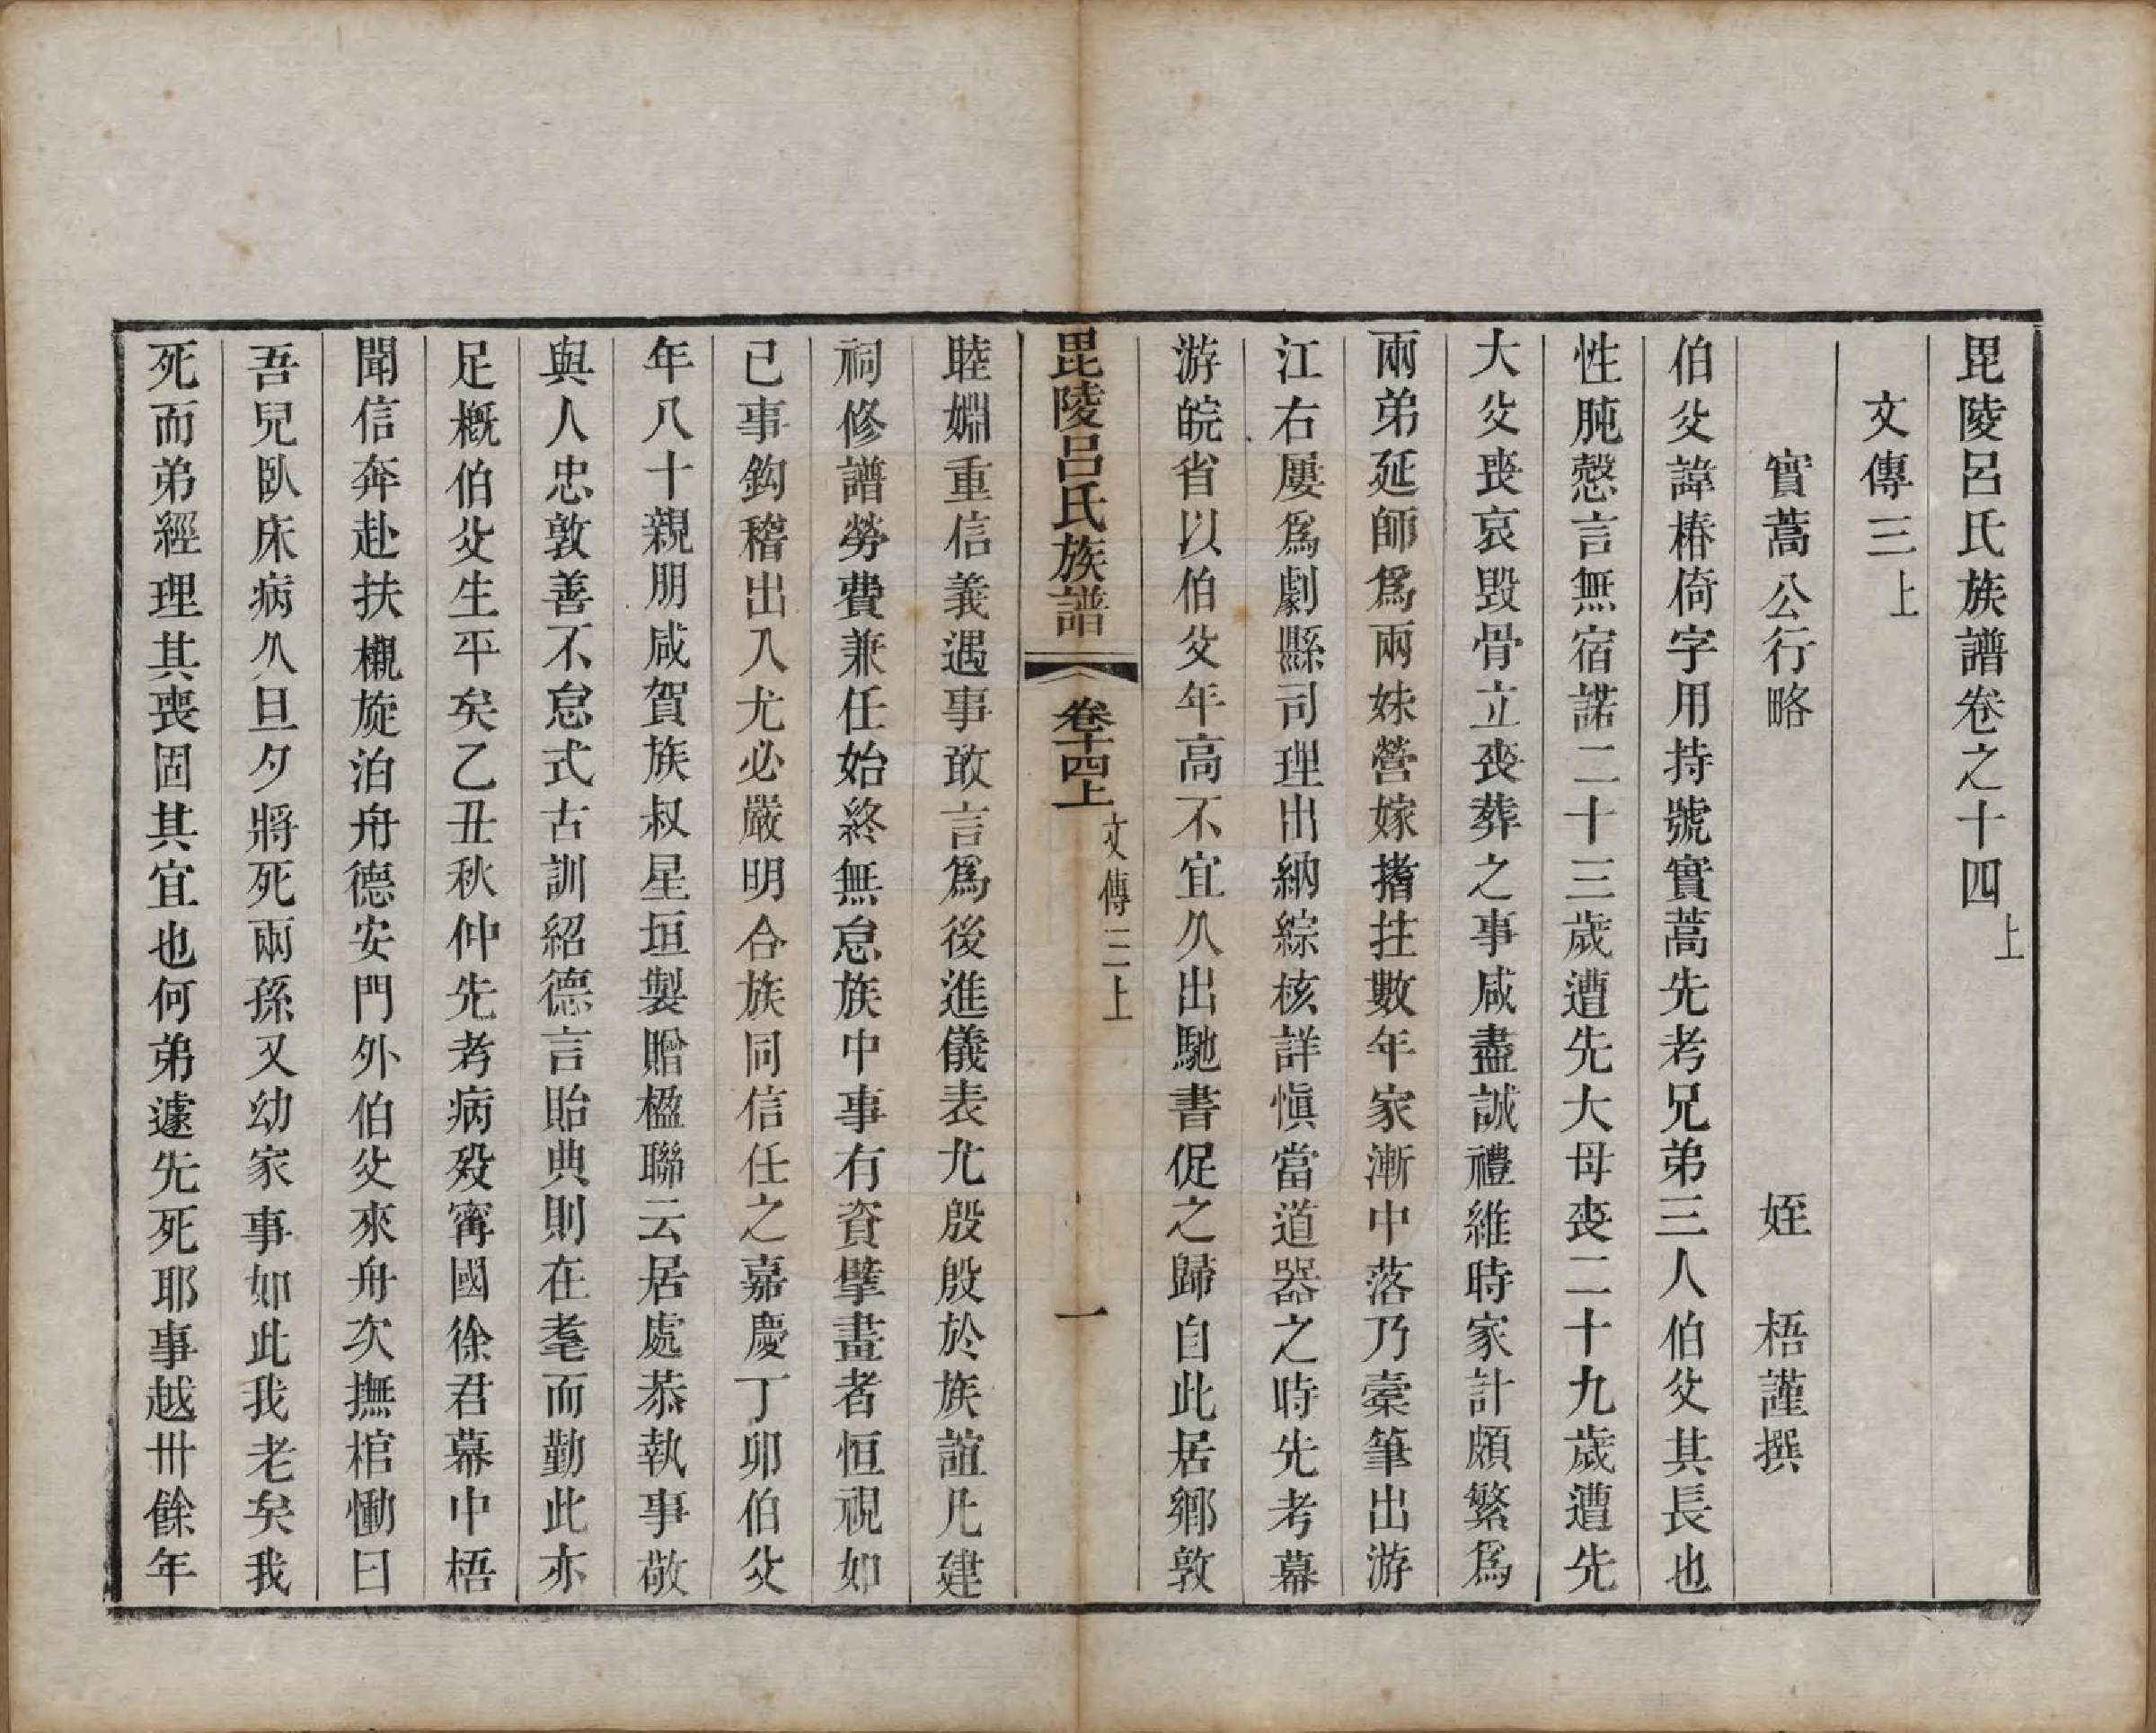 毘陵呂氏族譜卷之十四上
文傳三上
實蒿公行略　姪　梧謹撰
伯父諱椿倚字用持號實蒿先考兄弟三人伯父其長也
性肫慤言無宿諾二十三歲遭先大母喪二十九歲遭先
大父喪哀毀骨立喪葬之事咸盡誠禮維時家計頗繁爲
兩弟延師爲兩妹營嫁撦拄數年家漸中落乃槖筆出游
江右屢爲劇縣司理出納綜核詳愼當道器之時先考幕
游皖省以伯父年高不宜久出馳書促之歸自此居鄉敦
毘陵呂氏族譜　卷十四上　文傳三上　一
睦婣重信義遇事敢言爲後進儀表尤殷殷於族誼凡建
祠修譜勞費兼任始終無怠族中事有資擘畫者恒視如
己事鈎稽出入尤必嚴明合族同信任之嘉慶丁卯伯父
年八十親朋咸賀族叔星垣製贈楹聯云居處恭執事敬
與人忠敦善不怠式古訓紹德言貽典則在耄而勤此亦
足槪伯父生平矣乙丑秋仲先考病歿甯國徐君幕中梧
聞信奔赴扶櫬旋泊舟德安門外伯父來舟次撫棺慟曰
吾兒臥床病久旦夕將死兩孫又幼家事如此我老矣我
死而弟經理其喪固其宜也何弟遽先死耶事越卅餘年